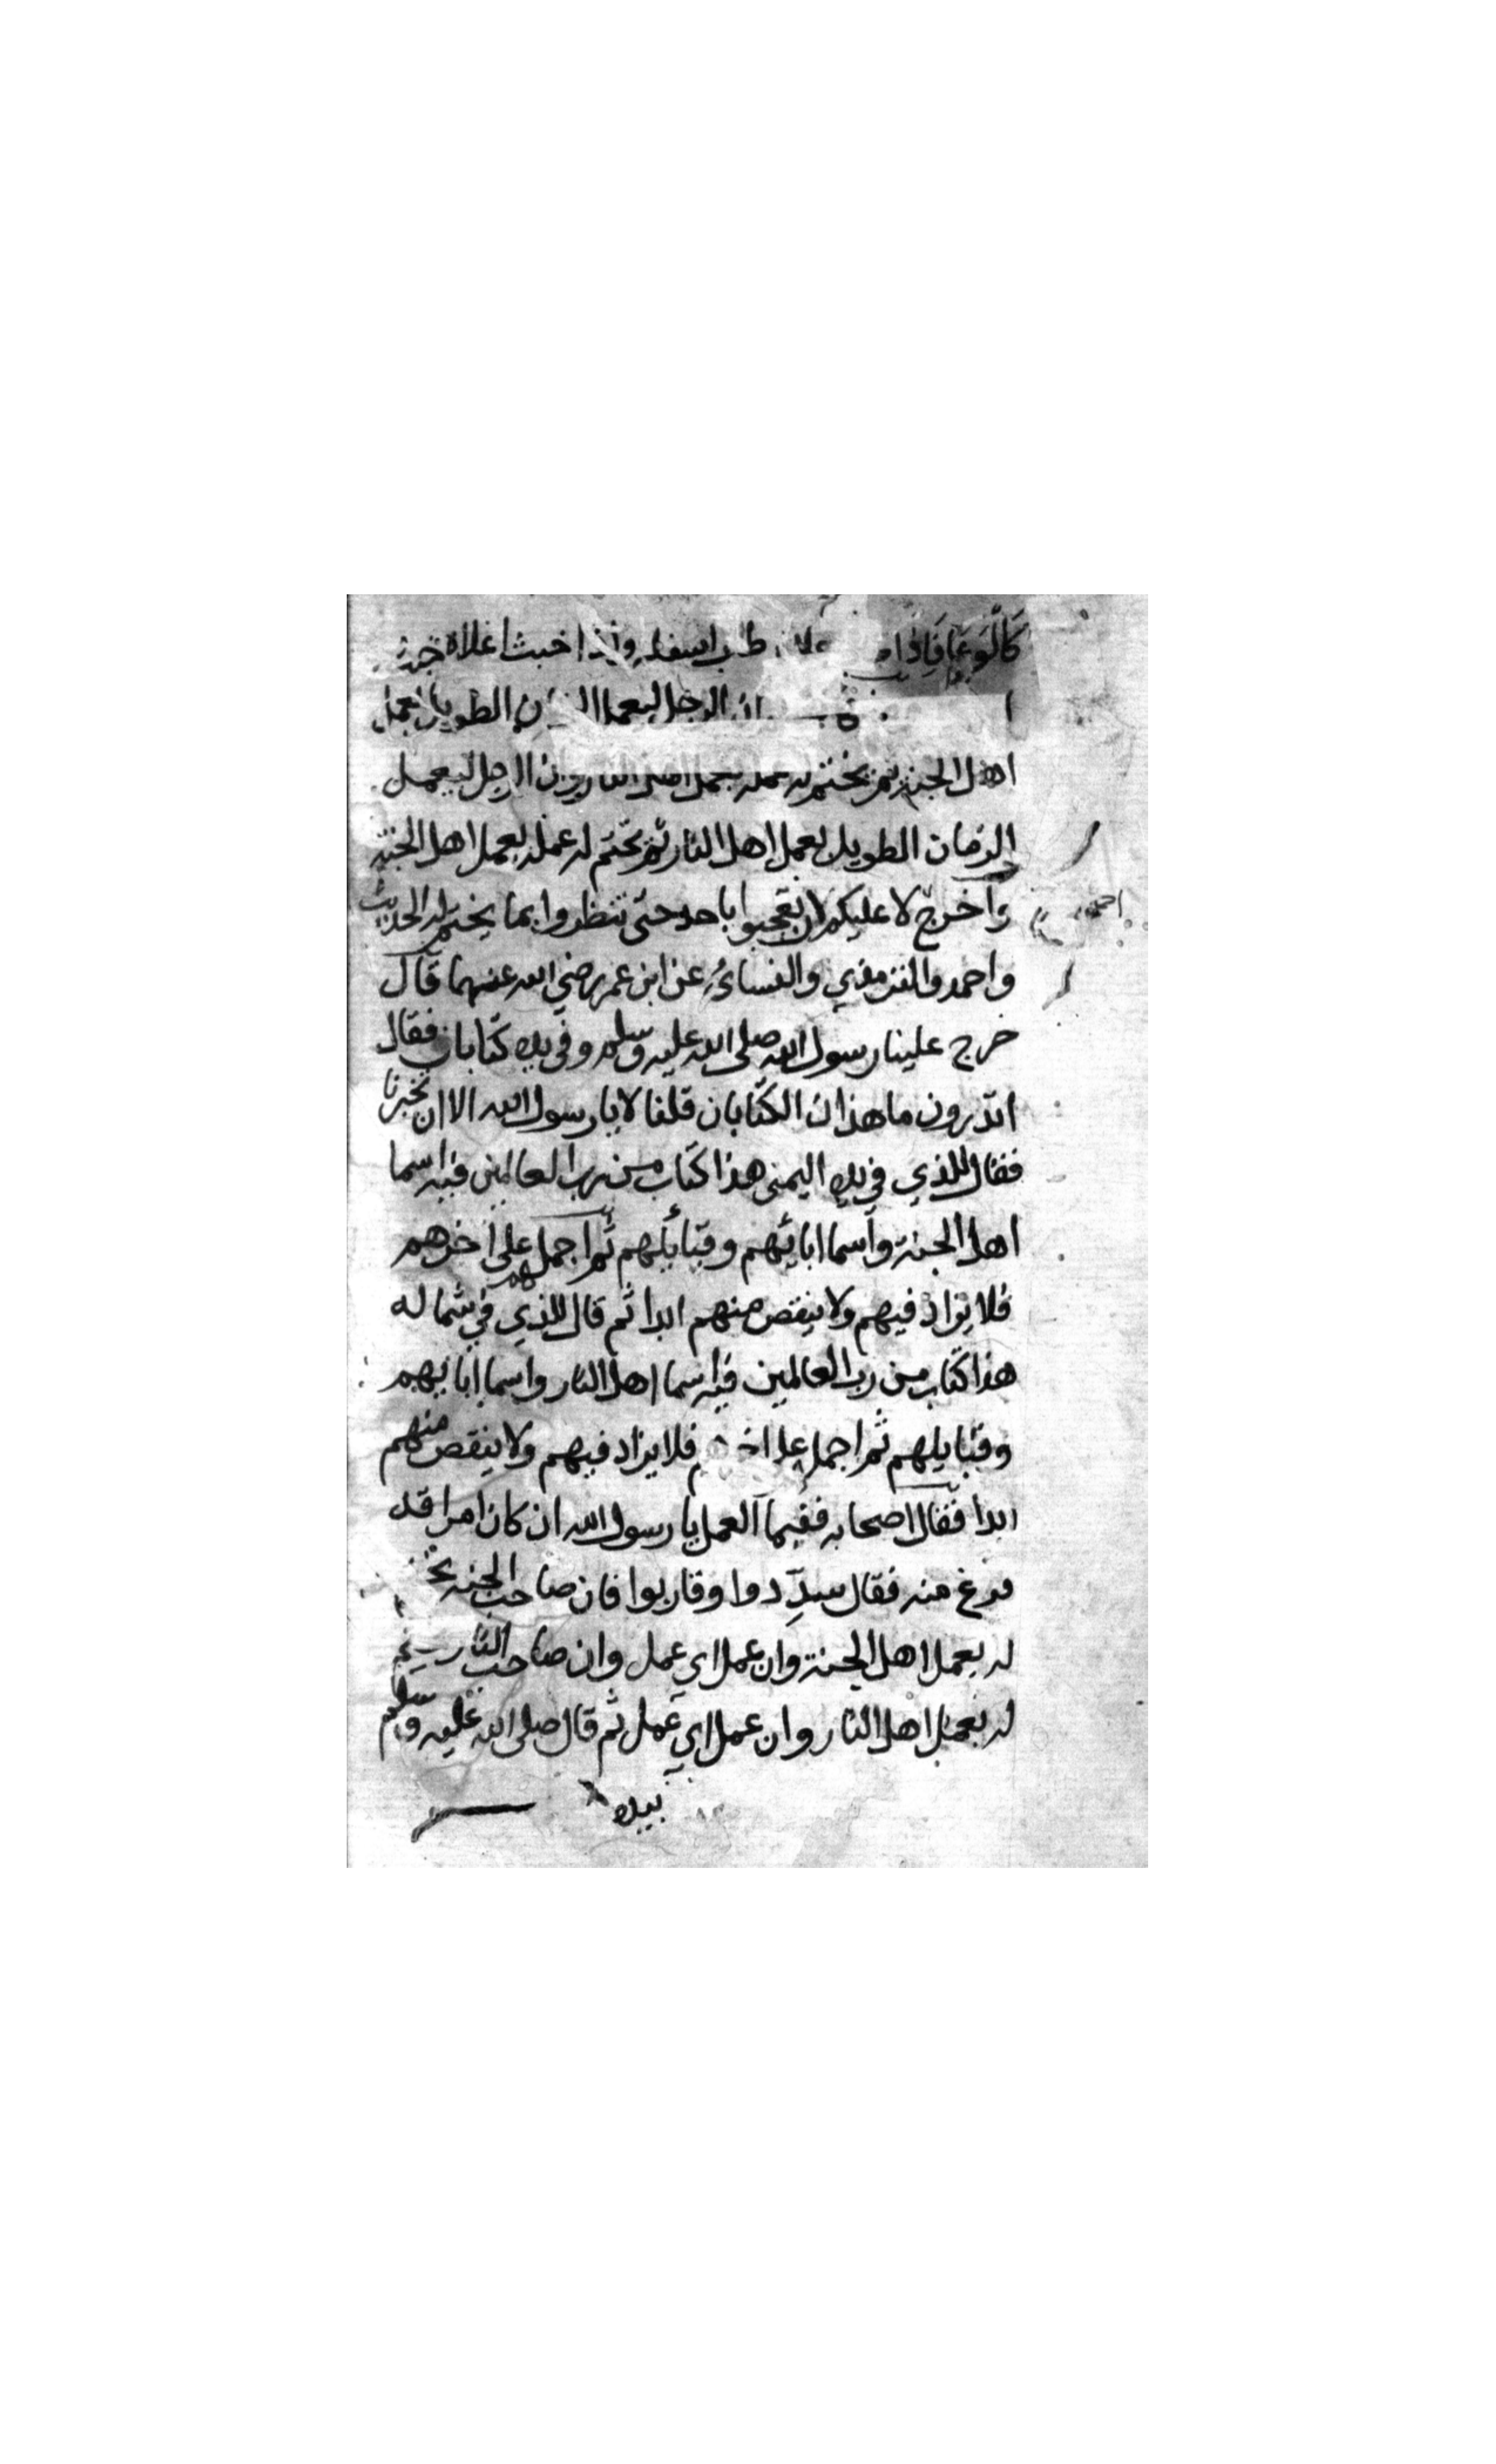 كَالْوِعَا فَاِذَا طاب اسفله واذا خبث اعلاه خبث
ان الرجل ليعمل الزمن الطويل بعمل
اهل الجنة ثم يختم له عمله بعمل اهل النار وان الرجل ليعمل
الزمان الطويل بعمل اهل النار ثم يختم له عمله بعمل اهل الجنة
وآخرج لا عليكم ان تعجبوا باحد حتى تنظروا بما يختم له الحديث
احمد
واحمد والترمذي والنسائ عن ابن عمر رضي الله عنهما قال
خرج علينا رسول الله صلى الله عليه وسلم وفي يده كتابان فقال
اتدرون ما هذان الكتابان قلنا لا يا رسول الله الا ان تخبرنا
فقال للذي في يده اليمنى هذا كتاب من رب العالمين فيه اسما
اهل الجنة وآسما ابائهم وقبائلهم ثم اجمل على اخرهم
فلا يزاد فيهم ولا ينقص منهم ابدا ثم قال للذي في شماله
هذا كتاب من رب العالمين فيه اسما اهل النار واسما ابائهم
وقبايلهم ثم اجمل على اخرهم فلا يزاد فيهم ولا ينقص منهم
ابدا فقال اصحابه ففيما العمل يا رسول الله ان كان امر قد
فرغ منه فقال سدِّدوا وقاربوا فان صاحب الجنة يختم
له بعمل اهل الجنة وان عمل اي عمل وان صاحب النار يختم
له بعمل اهل النار وان عمل اي عمل ثم قال صلى الله عليه وسلم
بيده